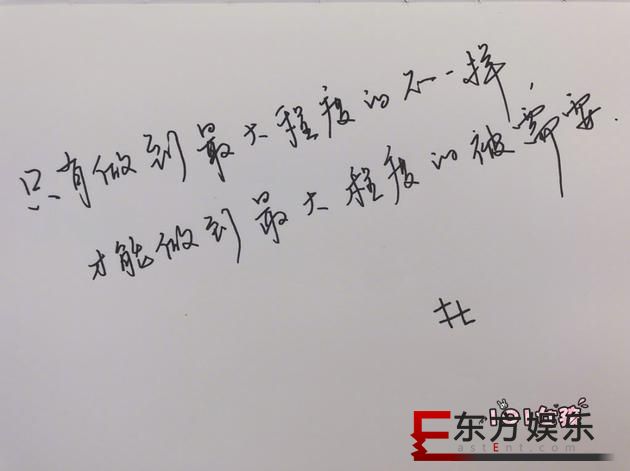 只有做到最大程度的不一样,
才能做到最大程度的被需要.
东方娱乐
EastEnt.com